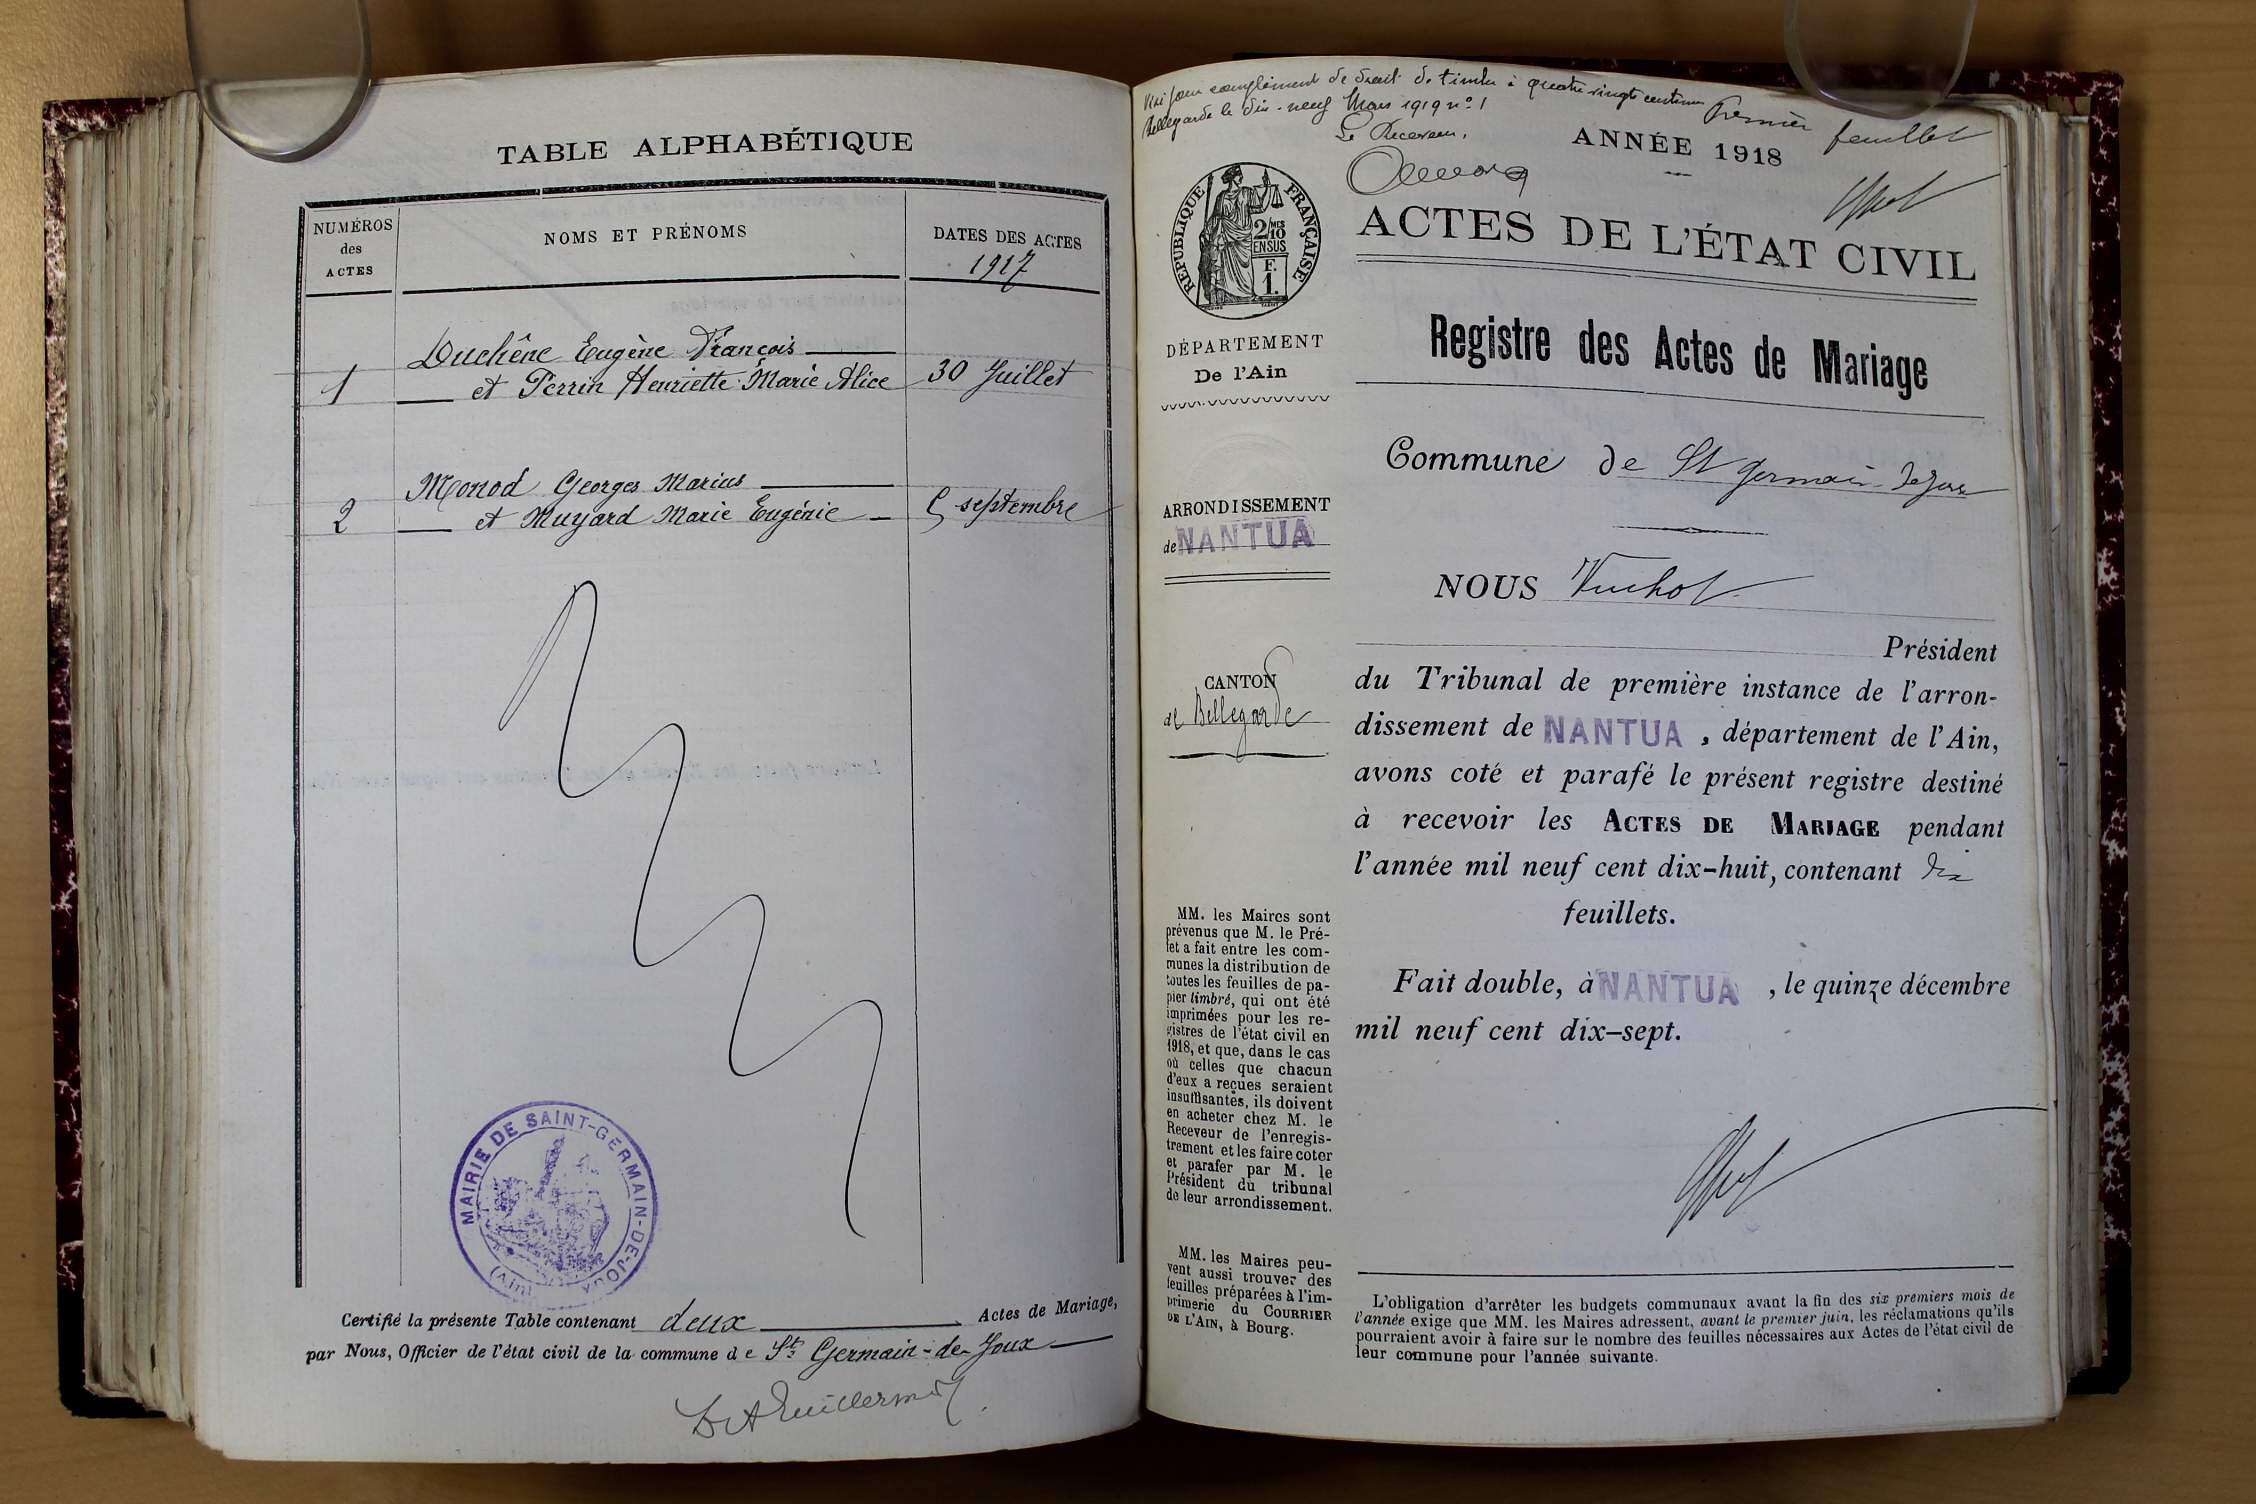 TABLE ALPHABÉTIQUE
NUMÉROS
des
ACTES
NOMS ET PRÉNOMS
DATES DES ACTES
1917
1
Duchêne Eugène François
et Perrin Henriette Marie Alice
30 Juillet
2
Monod Georges Marius
et Muyard Marie Eugénie
5 septembre
MAIRIE DE SAINT-GERMAIN-DE-JOUX
(Ain)
Certifié la présente Table contenant deux Actes de Mariage,
par Nous, Officier de l'état civil de la commune de St Germain-de-Joux
Visé pour complément de droit de timbre à quatre vingts centimes
Bellegarde le dix-neuf Mars 1919 n° 1
Le Receveur.
Premier feuillet
ANNÉE 1918
RÉPUBLIQUE FRANÇAISE
2/10
MES
EN SUS
F.
1.
ACTES DE L'ÉTAT CIVIL
Registre des Actes de Mariage
DÉPARTEMENT
De l'Ain
ARRONDISSEMENT
de NANTUA
CANTON
de Bellegarde
MM. les Maires sont
prévenus que M. le Pré-
fet a fait entre les com-
munes la distribution de
toutes les feuilles de pa-
pier timbré, qui ont été
imprimées pour les re-
gistres de l'état civil en
1918, et que, dans le cas
où celles que chacun
d'eux a reçues seraient
insuffisantes, ils doivent
en acheter chez M. le
Receveur de l'enregis-
trement et les faire coter
et parafer par M. le
Président du tribunal
de leur arrondissement.
MM. les Maires peu-
vent aussi trouver des
feuilles préparées à l'im-
primerie du COURRIER
DE L'AIN, à Bourg.
Commune de St Germain de Joux
NOUS Vuchot
Président
du Tribunal de première instance de l'arron-
dissement de NANTUA, département de l'Ain,
avons coté et parafé le présent registre destiné
à recevoir les ACTES DE MARIAGE pendant
l'année mil neuf cent dix-huit, contenant dix
feuillets.
Fait double, à NANTUA, le quinze décembre
mil neuf cent dix-sept.
L'obligation d'arrêter les budgets communaux avant la fin des six premiers mois de
l'année exige que MM. les Maires adressent, avant le premier juin, les réclamations qu'ils
pourraient avoir à faire sur le nombre des feuilles nécessaires aux Actes de l'état civil de
leur commune pour l'année suivante.